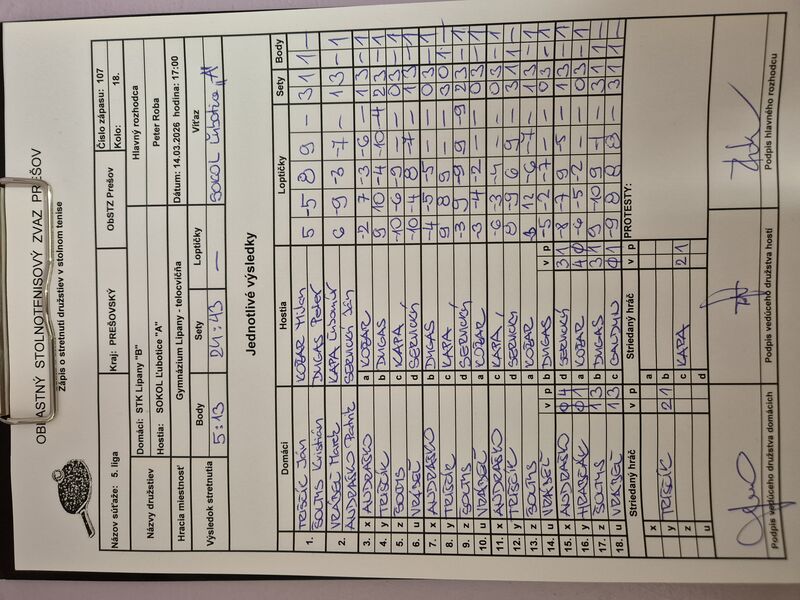 OBLASTNÝ STOLNOTENISOVÝ ZVÄZ PREŠOV
Zápis o stretnutí družstiev v stolnom tenise
Názov súťaže: 5. liga Kraj: PREŠOVSKÝ ObSTZ Prešov Číslo zápasu: 107
Kolo: 18.
Názvy družstiev Domáci: STK Lipany "B" Hlavný rozhodca
Hostia: SOKOL Ľubotice "A" Peter Roba
Hracia miestnosť Gymnázium Lipany - telocvičňa Dátum: 14.03.2026 hodina: 17:00
Výsledok stretnutia Body Sety Loptičky Víťaz
5:13 24:43 — SOKOL Ľubotice "A"
Jednotlivé výsledky
Domáci Hostia Loptičky Sety Body
1. TRIŠČÍK Ján KOŽÁR Milan 5 -5 8 9 — 3 1 1 —
SOUMS Kristián DUGAS Peter
2. VRÁBEĽ Marek KAPA Ľubomír 6 -9 -3 -7 — 1 3 — 1
ANDRAŠKO Patrik SERVICKÝ Ján
3. x ANDRAŠKO a KOŽÁR -2 7 -3 -6 — 1 3 — 1
4. y TRIŠČÍK b DUGAS 9 -10 -4 10 -4 2 3 — 1
5. z SOUMS c KAPA -10 -6 -9 — — 0 3 — 1
6. u VRÁBEĽ d SERVICKÝ -10 -4 8 -7 — 1 3 — 1
7. x ANDRAŠKO b DUGAS -4 -5 -5 — — 0 3 — 1
8. y TRIŠČÍK c KAPA 9 8 9 — — 3 0 1 —
9. z SOUMS d SERVICKÝ -3 9 -9 9 -9 2 3 — 1
10. u VRÁBEĽ a KOŽÁR -3 -4 -2 — — 0 3 — 1
11. x ANDRAŠKO c KAPA -6 -3 -4 — — 0 3 — 1
12. y TRIŠČÍK d SERVICKÝ 8 -9 6 9 — 3 1 1 —
13. z SOUMS a KOŽÁR 12 -6 -7 — 1 3 — 1
14. u VRÁBEĽ v p b DUGAS v p -5 -2 -7 — — 0 3 — 1
15. x ANDRAŠKO 0 4 d SERVICKÝ 3 1 -8 -7 9 -5 — 1 3 — 1
16. y 0 1 a KOŽÁR 4 0 -6 -5 -2 — — 0 3 — 1
17. z SOUMS 1 3 b DUGAS 3 1 9 -10 9 — 3 1 1 —
18. u VRÁBEĽ 1 3 c 0 1 -9 8 8 8 — 3 1 1 —
Striedaný hráč v p Striedaný hráč v p PROTESTY:
x a
y TRIŠČÍK 2 1 b
z c KAPA 2 1
u d
Podpis vedúceho družstva domácich Podpis vedúceho družstva hostí Podpis hlavného rozhodcu